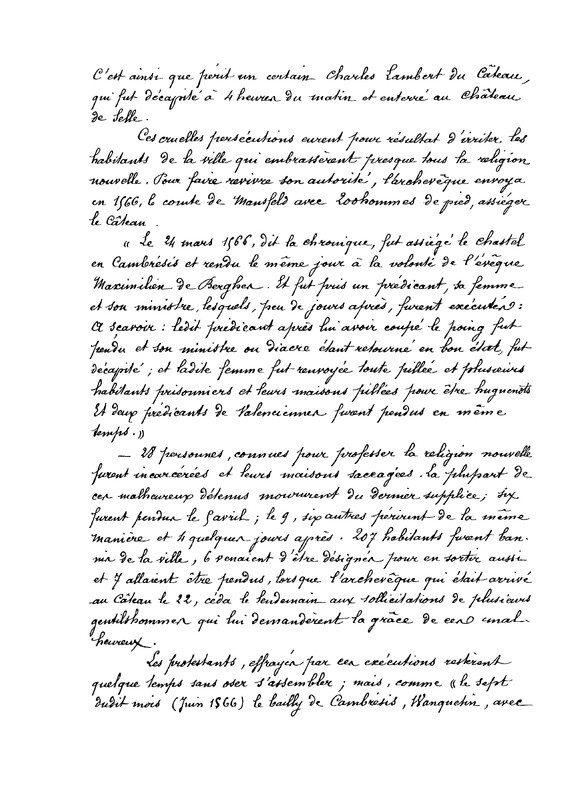 C'est ainsi que périt un certain Charles Lambert du Câteau,
qui fut décapité à 4 heures du matin et enterré au Château
de Selle.
Ces cruelles persécutions eurent pour résultat d'irriter les
habitants de la ville qui embrassèrent presque tous la religion
nouvelle. Pour faire revivre son autorité, l'archevêque envoya
en 1566, le comte de Mansfeld avec 200 hommes de pied, assiéger
le Câteau.
« Le 24 mars 1566, dit la chronique, fut assiégé le chastel
en Cambrésis et rendu le même jour à la volonté de l'évêque
Maximilien de Berghes. Et fut pris un prédicant, sa femme
et son ministre, lesquels, peu de jours après, furent exécutés :
A scavoir : ledit prédicant après lui avoir coupé le poing fut
pendu et son ministre ou diacre étant retourné en bon état, fut
décapité ; et ladite femme fut renvoyée toute pillée et plusieurs
habitants prisonniers et leurs maisons pillées pour être huguenots
Et deux prédicants de Valenciennes furent pendus en même
temps. »
— 28 personnes, connues pour professer la religion nouvelle
furent incarcérées et leurs maisons saccagées. La plupart de
ces malheureux détenus moururent du dernier supplice ; six
furent pendus le 5 avril ; le 9, six autres périrent de la même
manière et 4 quelques jours après. 207 habitants furent ban.
nis de la ville, 6 venaient d'être désignés pour en sortir aussi
et 7 allaient être pendus, lorsque l'archevêque qui était arrivé
au Câteau le 22, céda le lendemain aux sollicitations de plusieurs
gentilshommes qui lui demandèrent la grâce de ces mal-
heureux.
Les protestants, effrayés par ces exécutions restèrent
quelque temps sans oser s'assembler ; mais, comme « le sept
dudit mois (Juin 1566) le bailly de Cambrésis, Wanquetin, avec